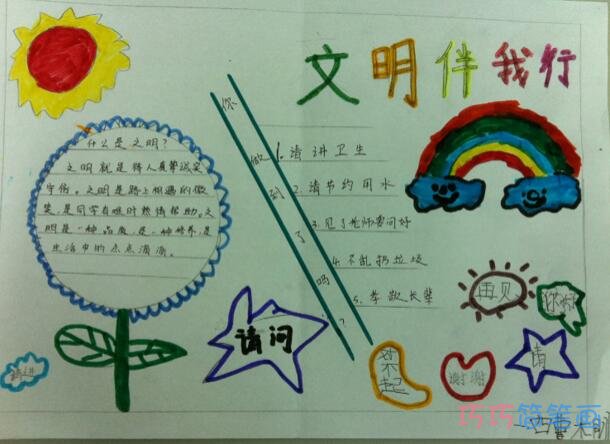 文明伴我行
什么是文明?
文明就是待人真挚诚实
守信。文明是路上相遇的微
笑,是同学有难时热情帮助。文
明是一种品质,是一种修养,是
生活中的点点滴滴。
你做到了吗?
1.请讲卫生
2.请节约用水
3.见了老师要问好
4.不乱扔垃圾
5.孝敬长辈
请问
对不起
谢谢
再见
你好
请
巧巧简笔画